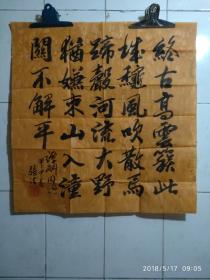 終古高雲簇此
城龝風吹散馬
蹄聲河流大野
猶嫌束山入潼
關不解平
2018/5/17 09:05